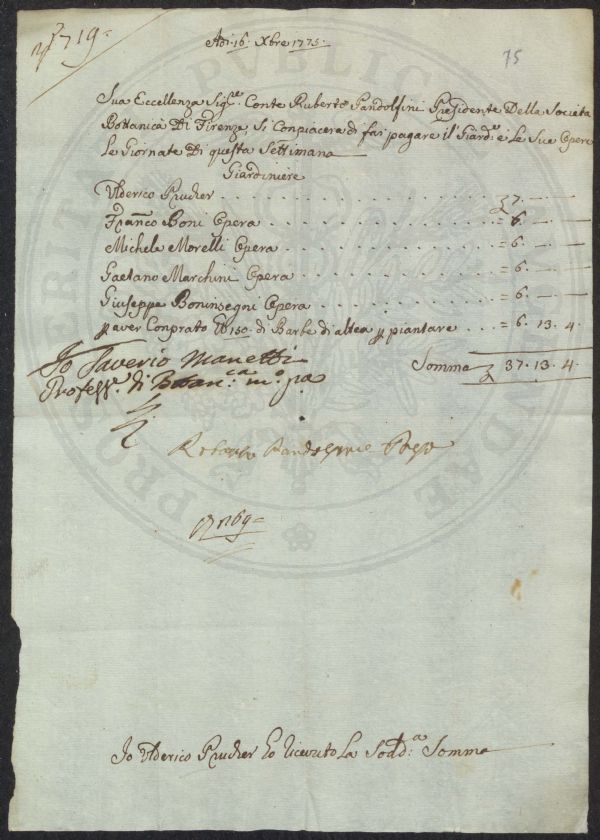 719
Adi. 16. Xbre 1775.
75
Sua Eccellenza Sig.re Conte Ruberto Pandolfini Presidente Della Societa
Bottanica Di Firenze, Si Conpiacera di far pagare il Giard.e e Le Sue Opere
Le Giornate Di questa Settimana
Giardiniere
Ulderico Prucher . . . 7. — —
Fran.co Boni Opera . . . = 6. — —
Michele Morelli Opera . . . = 6. — —
Gaetano Marchini Opera . . . = 6. — —
Giuseppe Boninsegni Opera . . . = 6. — —
p aver Conprato 150. di Barbe di altea p piantare . . . = 6. 13. 4.
Io Saverio Manetti
Somma 37. 13. 4
Profess.e di Botan.ca m.o pa
Roberto Pandolfini
169
Io Ulderico Prucher Ho Riceuto La Sodd.a Somma
PUBLICAE
PROSPERITATI AUGENDAE